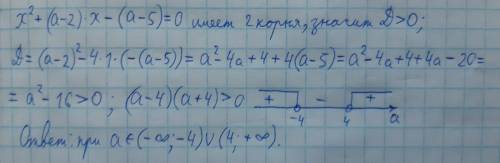 x²+(a-2)·x-(a-5)=0 имеет 2 корня, значит D>0;
D=(a-2)²-4·1·(-(a-5))=a²-4a+4+4(a-5)=a²-4a+4+4a-20=
=a²-16>0; (a-4)(a+4)>0 + -4 - 4 + a
Ответ: при a∈(-∞;-4)∪(4;+∞).